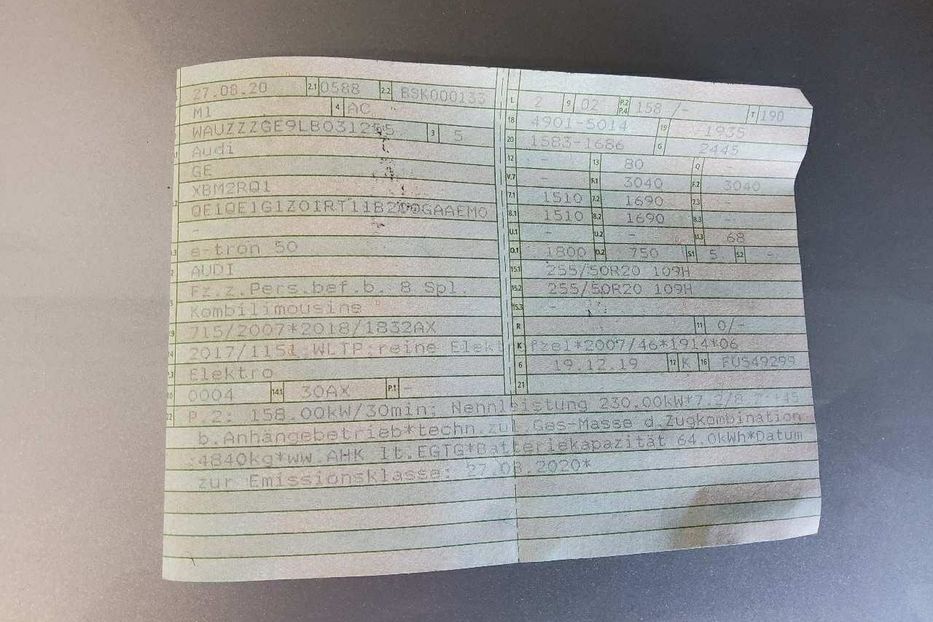 27.08.20 2.1 0588 2.2 BSK000133
M1 4 AC
WAUZZZGE9LB031255 3 5
Audi
GE
XBM2RQ1
QE1QE1G1Z01RT11B200GAAEM0
-
e-tron 50
AUDI
Fz.z.Pers.bef.b. 8 Spl.
Kombilimousine
715/2007*2018/1832AX
2017/1151;WLTP;reine Elektrofzel*2007/46*1914*06
Elektro
0004 14.1 30AX P.1 -
L 2 9 02 P.2 P.4 158 /- T 190
18 4901-5014 19 1935
20 1583-1686 G 2445
12 - 13 80 Q -
V.7 - F.1 3040 F.2 3040
7.1 1510 7.2 1690 7.3 -
8.1 1510 8.2 1690 8.3 -
U.1 - U.2 - U.3 68
O.1 1800 O.2 750 S.1 5 S.2 -
15.1 255/50R20 109H
15.2 255/50R20 109H
15.3 -
R 11 0/-
K
6 19.12.19 17 K 16 FUS49299
21
P.2: 158.00kW/30min; Nennleistung 230.00kW*7.2/8.2:+45
b.Anhängebetrieb*techn.zul.Ges-Masse d.Zugkombination
:4840kg*ww.AHK lt.EGTG*Batteriekapazität 64.0kWh*Datum
zur Emissionsklasse: 27.08.2020*